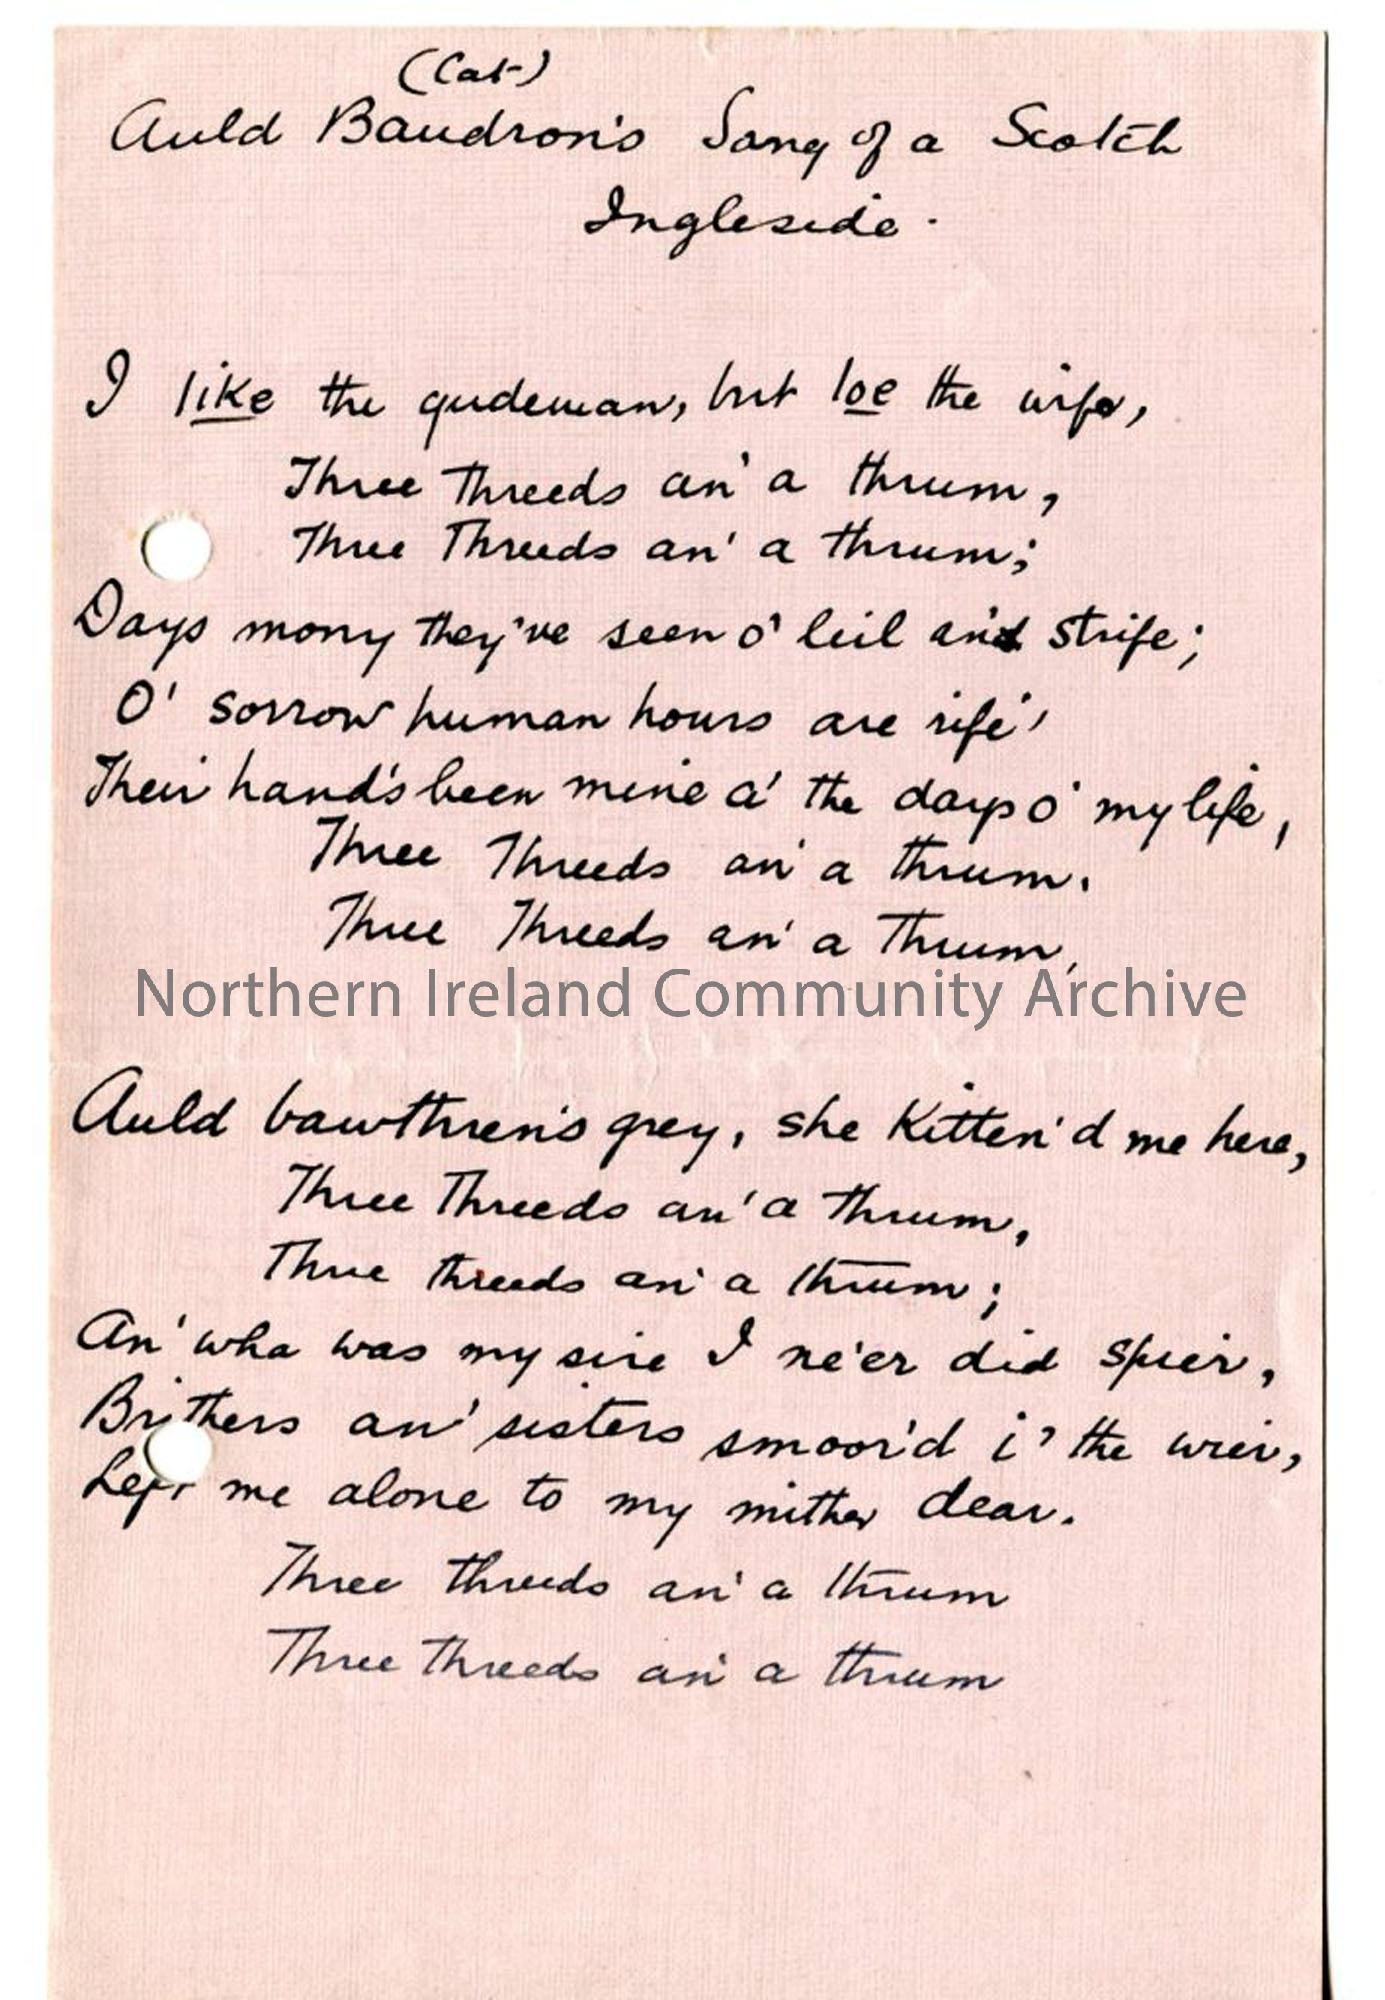 (Cat)
Auld Baudron's Sang of a Scotch
Ingleside.
I like the gudeman, but loe the wife,
Three Threeds an' a thrum,
Three Threeds an' a thrum;
Days mony they've seen o' leil and strife;
O' sorrow human hours are rife'
Their hand's been mine a' the days o' my life,
Three Threeds an' a thrum.
Three Threeds an' a Thrum,
Northern Ireland Community Archive
Auld bawthren's grey, she Kitten'd me here,
Three Threeds an' a thrum,
Three threeds an' a thrum;
An' wha was my sire I ne'er did spier,
Brithers an' sisters smoor'd i' the wier,
Left me alone to my mither dear.
Three threeds an' a thrum
Three Threeds an' a thrum